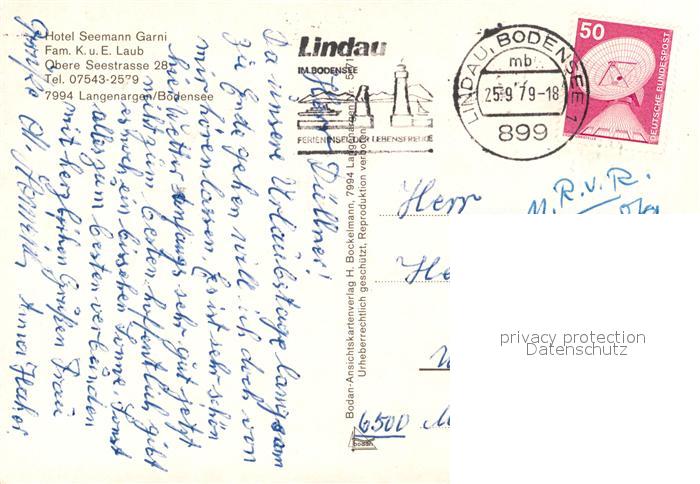 Hotel Seemann Garni
Fam. K. u. E. Laub
Obere Seestrasse 28
Tel. 07543-2579
7994 Langenargen/Bodensee
Herr Düllner!
Da unsere Urlaubstage langsam
zu Ende gehen will ich doch von
mir hören lassen. Es ist sehr schön
hier Wetter Anfangs sehr gut jetzt
nicht zum besten hoffentlich gibt
es noch ein bisschen Sonne, sonst
alles zum besten verbunden
mit herzlichen Grüßen Frau
Anna
Grüße H.
Bodan-Ansichtskartenverlag H. Bockelmann, 7994 Langenargen
Urheberrechtlich geschützt, Reproduktion verboten!
bodan
Lindau
IM BODENSEE
FERIENINSEL DER LEBENSFREUDE
LINDAU, BODENSEE 1
mb
25.9.79-18
899
50
DEUTSCHE BUNDESPOST
M.R.v.R.
Herr
He
6500 M
privacy protection
Datenschutz